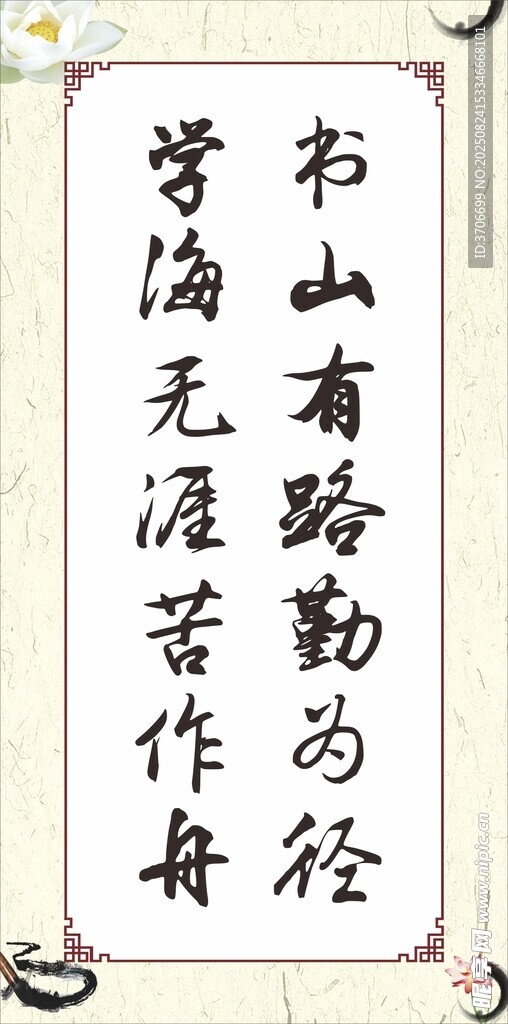 书山有路勤为径
学海无涯苦作舟
ID:3706699 NO:20250824153346668101
昵享网 www.nipic.cn